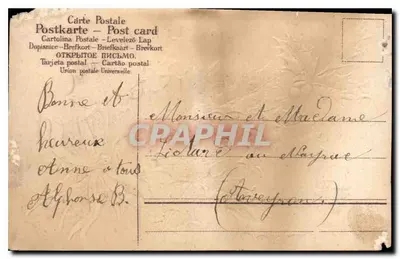 Carte Postale
Postkarte - Post card
Cartolina Postale - Levelező Lap
Dopisnice - Brefkort - Briefkaart - Brevkort
ОТКРЫТОЕ ПИСЬМО.
Tarjeta postal - Cartão postal
Union postale Universelle.
Bonne et
heureux
Anne a tous
Alphonse B.
Monsieur et Madame
au Nayrac
(Aveyron)
CPAPHIL